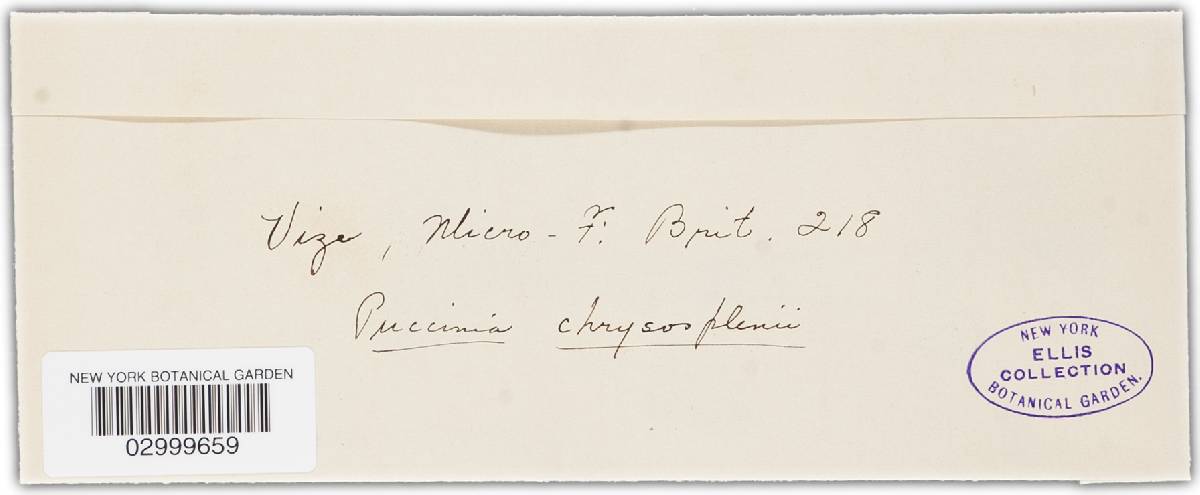 Vize, Micro-F. Brit. 218
Puccinia chrysosplenii
NEW YORK BOTANICAL GARDEN
02999659
NEW YORK
ELLIS
COLLECTION
BOTANICAL GARDEN.